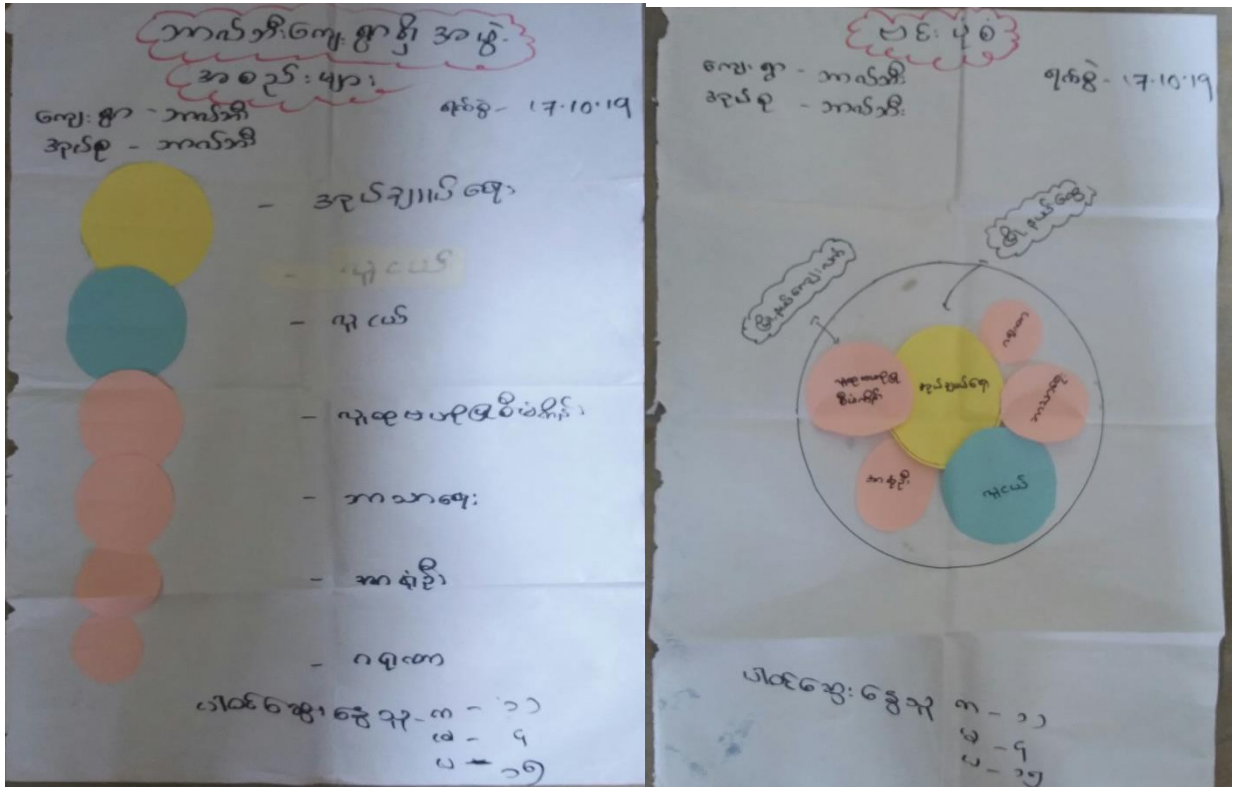 ဘာလ်ဘီးကျေးရွာရှိ အဖွဲ့
အစည်းများ
ကျေးရွာ - ဘာလ်ဘီ
အုပ်စု - ဘာလ်ဘီ
ရက်စွဲ - 17.10.19
- အုပ်ချုပ်ရေး
- လူငယ်
- လူငယ်
- လူထုဗဟိုပြုစီမံကိန်း
- ဘာသာရေး
- အာရုံဦး
- ဂရုဏာ
ပါဝင်ဆွေးနွေးသူ - က - ၁၁
မ - ၄
ပ - ၁၅
ဗင်းပုံစံ
ကျေးရွာ - ဘာလ်ဘီး
အုပ်စု - ဘာလ်ဘီး
ရက်စွဲ - 17.10.19
မြို့နယ်ကျေးလက်
လူထုဗဟိုပြု
စီမံကိန်း
အုပ်ချုပ်ရေး
အာရုံဦး
လူငယ်
ပါဝင်ဆွေးနွေးသူ က - ၁၁
မ - ၄
ပ - ၁၅